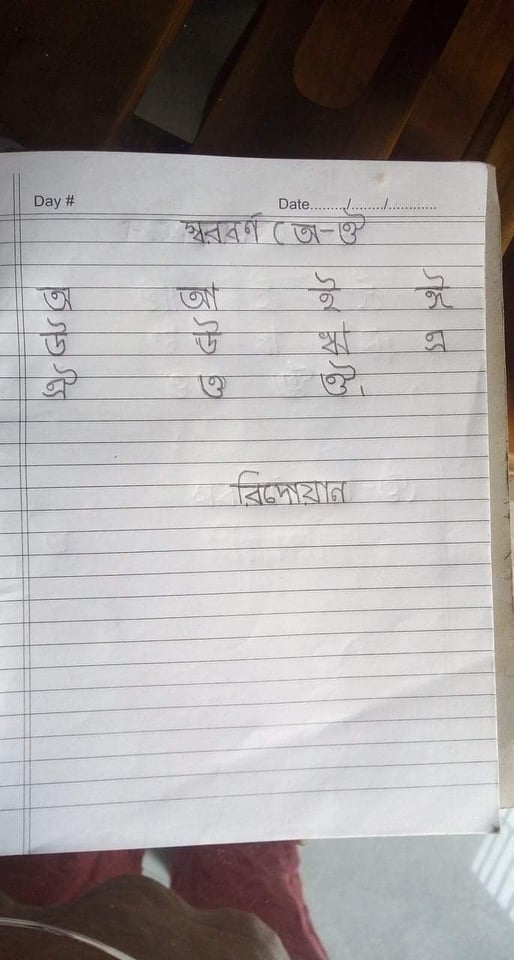 Day # Date........./......../............
স্বরবর্ণ (অ-ঔ
অ আ ই ঈ
উ ঊ ঋ এ
ঐ ও ঔ
রিদোয়ান